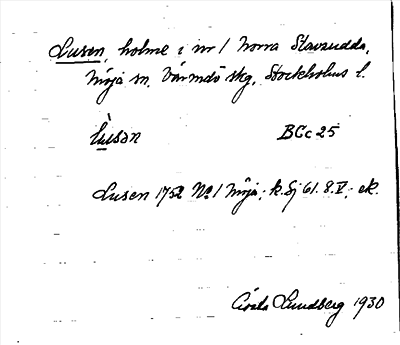 Lusen, holme i nr 1 Norra Stavsudda,
Möja sn, Värmdö skg, Stockholms l.
lùsǝn BCc 25
Lusen 1752 No 1 Möja; k. Sj 61. 8. V; ek.
Gösta Lundberg 1930